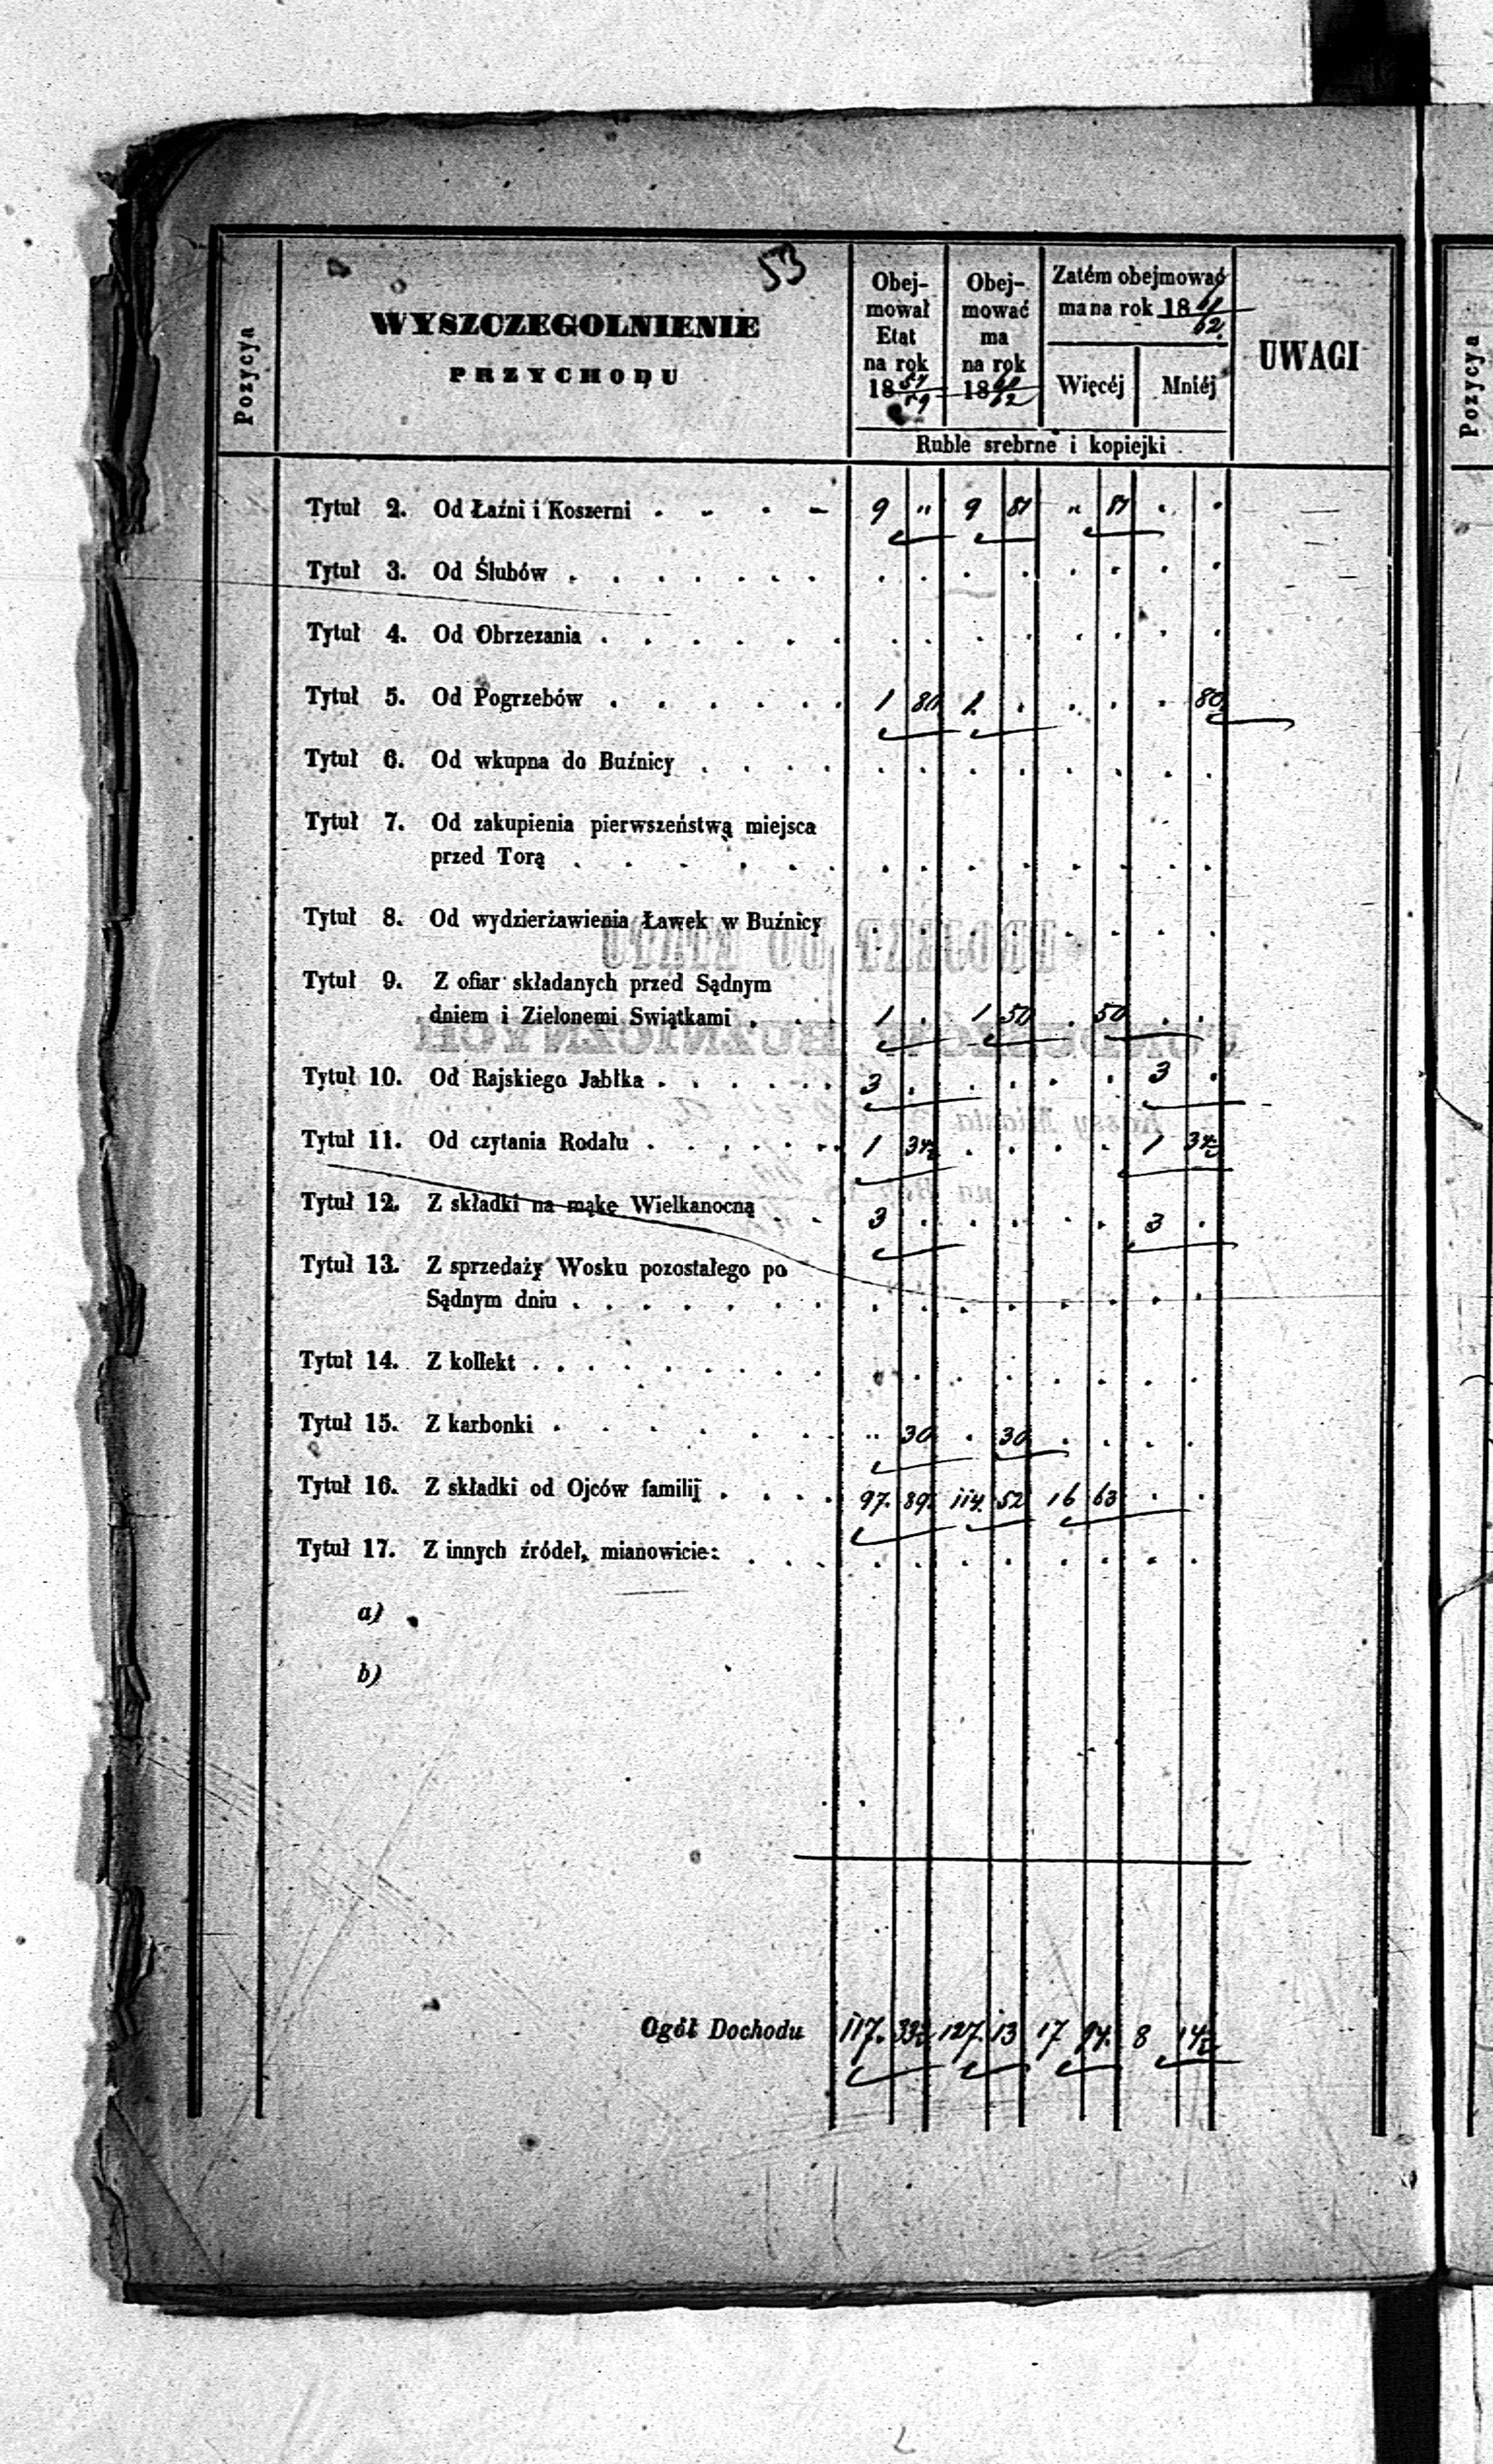 53
Pozycya
WYSZCZEGOLNIENIE
PRZYCHODU
Obej-
mował
Etat
na rok
18 /59
Obej-
mować
ma
na rok
18 /62
Zatém obejmować
ma na rok 18 /62.
Więcéj Mniéj
Ruble srebrne i kopiejki
UWAGI
Pozycya
Tytuł 2. Od Łaźni i Koszerni . - . - 9 " 9 81 " 81 . .
Tytuł 3. Od Ślubów . . . . . . .
Tytuł 4. Od Obrzezania . . . . . .
Tytuł 5. Od Pogrzebów . . . . . . 1 80 1 . . . . 80
Tytuł 6. Od wkupna do Buźnicy . . . .
Tytuł 7. Od zakupienia pierwszeństwą miejsca
przed Torą . . . . . .
Tytuł 8. Od wydzierżawienia Ławek w Buźnicy
Tytuł 9. Z ofiar składanych przed Sądnym
dniem i Zielonemi Swiątkami . . . 1 . 1 50 . 50 . .
Tytuł 10. Od Rajskiego Jabłka . . . . . . 3 . . . . . 3 .
Tytuł 11. Od czytania Rodału . . . . . . 1 34½ . . . . 1 34½
Tytuł 12. Z składki na mąkę Wielkanocną . . 3 . . . . . 3 .
Tytuł 13. Z sprzedaży Wosku pozostałego po
Sądnym dniu . . . . . . .
Tytuł 14. Z kollekt . . . . . . . .
Tytuł 15. Z karbonki . . . . . . .. 30 . 30 . . . .
Tytuł 16. Z składki od Ojców familij . . . . 97. 89. 114. 52 16 63 . .
Tytuł 17. Z innych źródeł, mianowicie: . . .
a)
b)
Ogół Dochodu 117. 33½ 127. 13 17 94. 8 14½